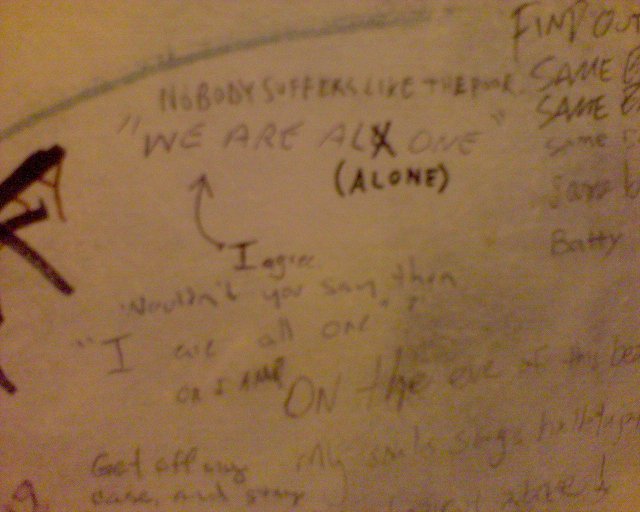 NOBODY SUFFERS LIKE THE POOR
"WE ARE ALX ONE"
(ALONE)
I agree
Wouldn't you say, then
"I are all one"?
OR I AM
FIND OUT
SAME
SAME
same
Batty
ON the eve of this
My souls sings hallelujah
Get off my
case, and stay